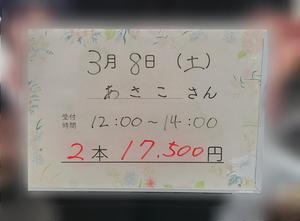 3月8日（土）
あさこさん
受付時間 12:00～14:00
2本 17,500円